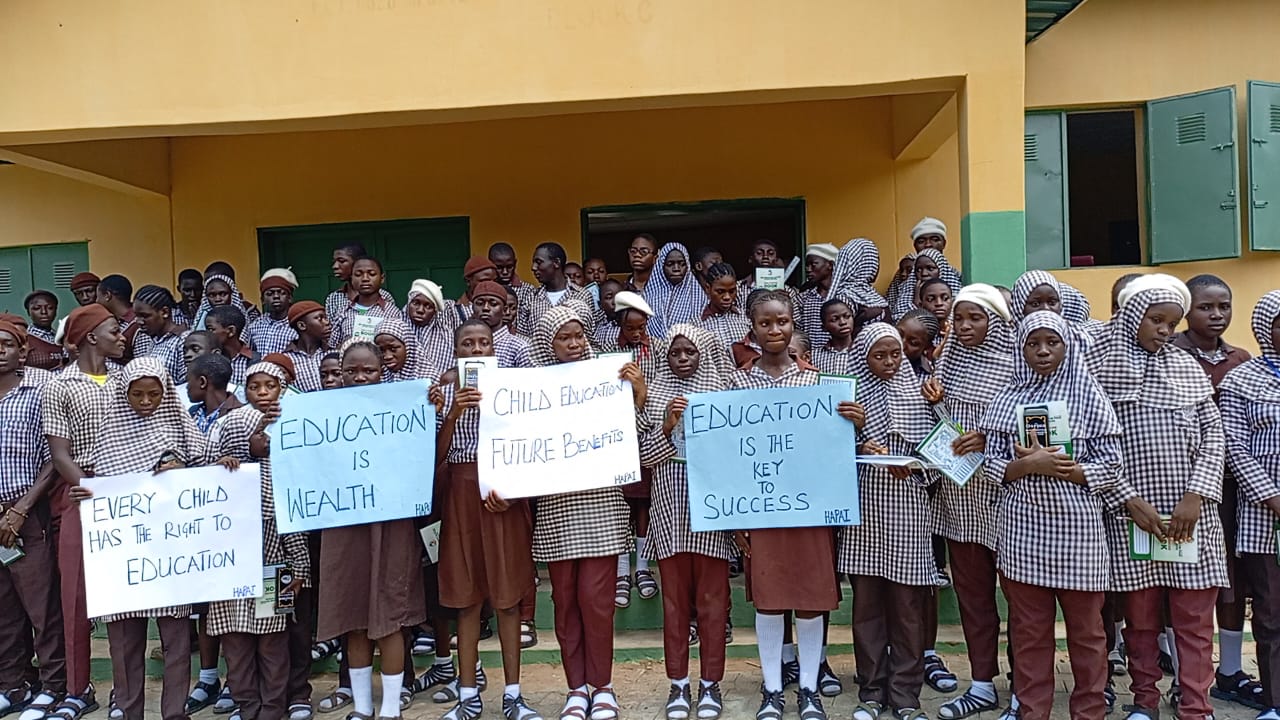 EVERY CHILD
HAS THE RIGHT TO
EDUCATION
HAPAI
EDUCATION
IS
WEALTH.
CHILD EDUCATION
FUTURE BENEFITS
HAPAI
EDUCATION
IS THE
KEY
TO
SUCCESS
HAPAI